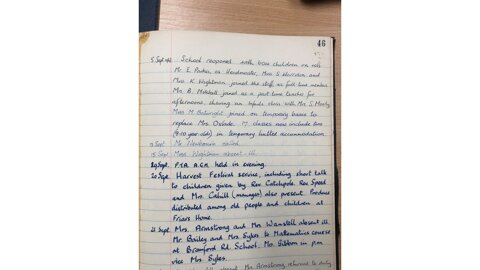 46
School reopened with children on roll
Mr. E. Parker, as Headmaster, Mrs. S. and
Mrs. K. Wightman joined the staff, as full time members.
Mrs. B. joined as a part time teacher for
afternoons, sharing an infants class with Mrs. S.
Miss M. joined on temporary basis to
replace Mrs. classes now include two
(9-10 year olds) in temporary hutted accommodation.
Sept. Mr. called.
15 Sept. Mrs. Wightman absent ill.
Sept. P.T.A. A.G.M. held in evening.
20 Sept. Harvest Festival service, including short talk
to children given by Rev. Catchpole. Rev. Speed
and Mrs. Cahill (manager) also present. Produce
distributed among old people and children at
Friars Home.
21 Sept. Mrs. Armstrong and Mrs. Wanstall absent ill.
Mr. Bailey and Mrs. Sykes to Mathematics course
at Bramford Rd. School. Mrs. Gibbon in p.m.
vice Mrs. Sykes.
Mrs. Armstrong returned to duty